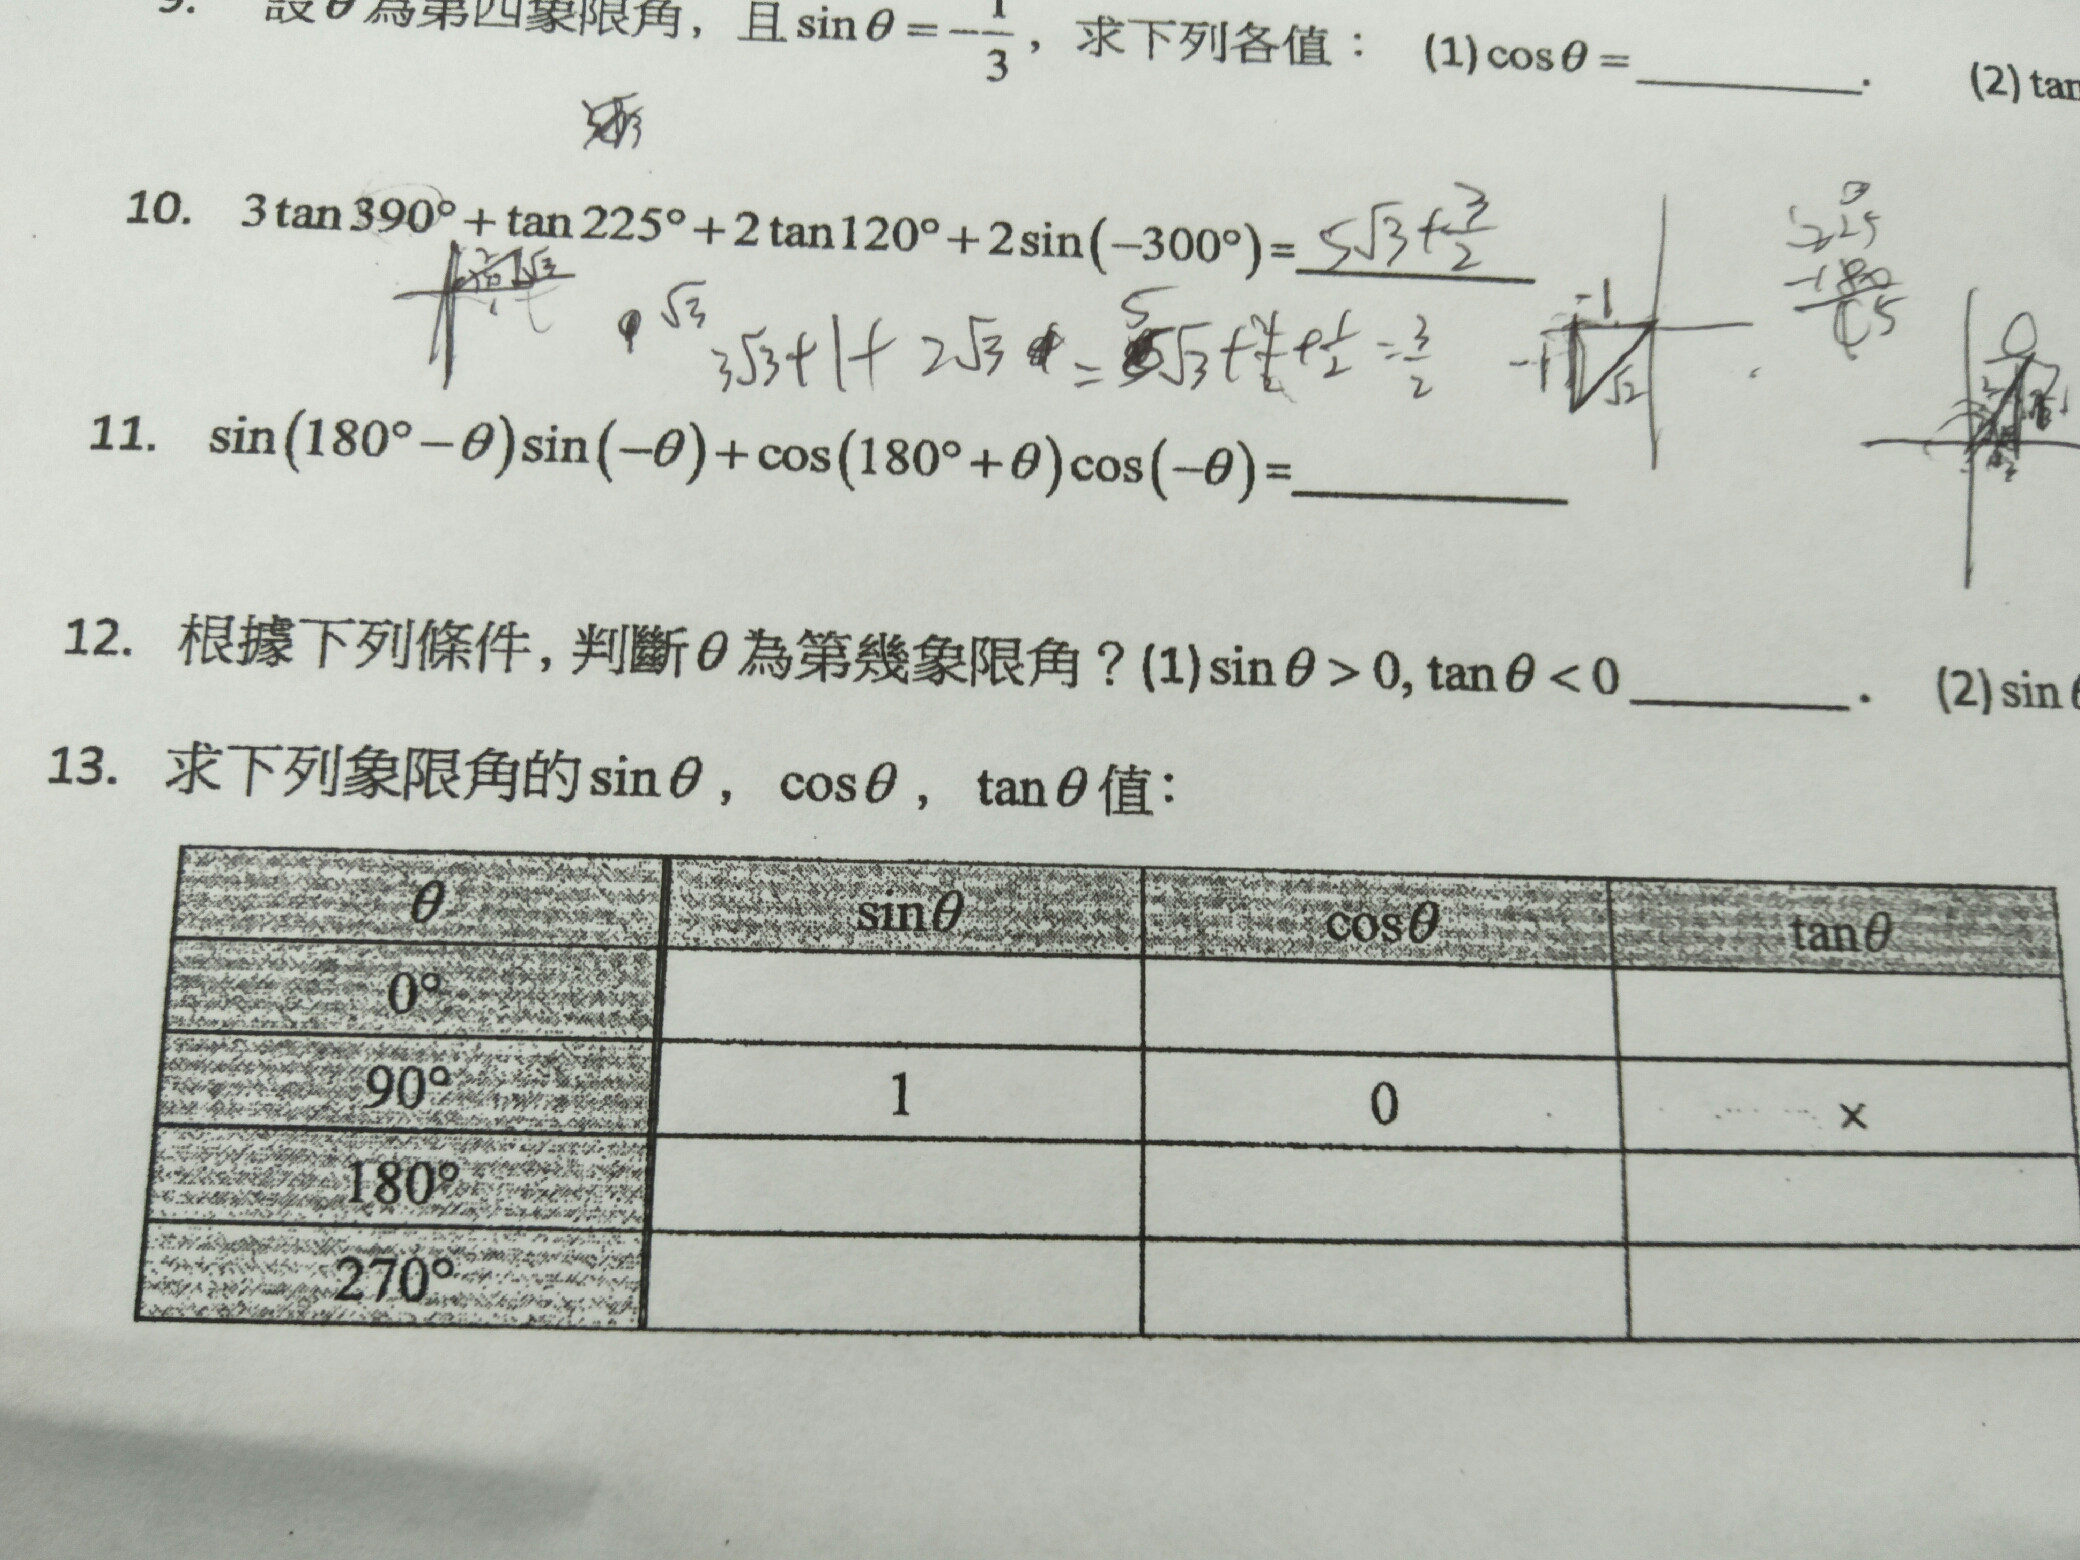 9. 設θ為第四象限角，且 sinθ = -1/3，求下列各值： (1) cosθ = ________. (2) tan
10. 3tan390° + tan225° + 2tan120° + 2sin(-300°) = 5√3 + 3/2
√3 3√3 + 1 + 2√3 = 5√3 + + 1/2 = 3/2
-1
-1 √2
225
-180
11. sin(180° - θ)sin(-θ) + cos(180° + θ)cos(-θ) = ________
12. 根據下列條件, 判斷θ為第幾象限角？(1) sinθ > 0, tanθ < 0 ________. (2) sinθ
13. 求下列象限角的sinθ， cosθ， tanθ值：
θ sinθ cosθ tanθ
0°
90° 1 0 ×
180°
270°